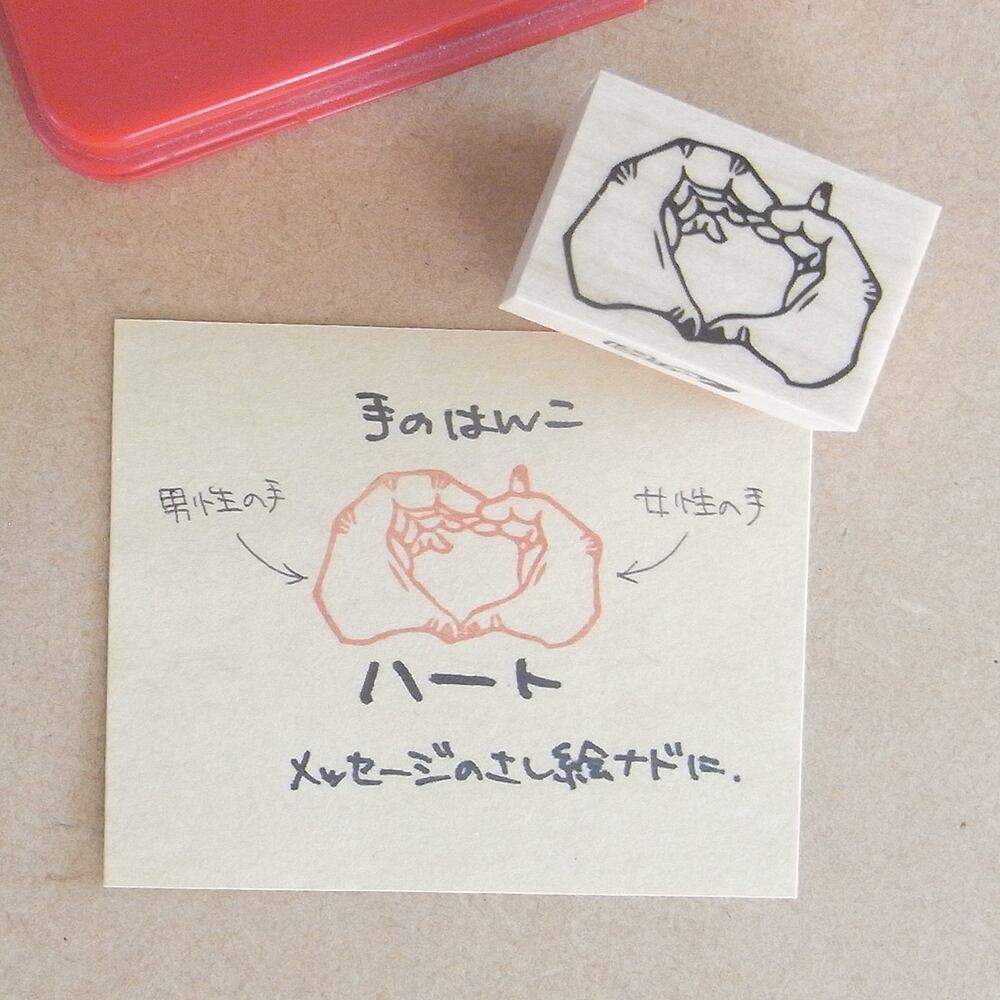 手のはんこ
男性の手
女性の手
ハート
メッセージのさし絵ナドに.